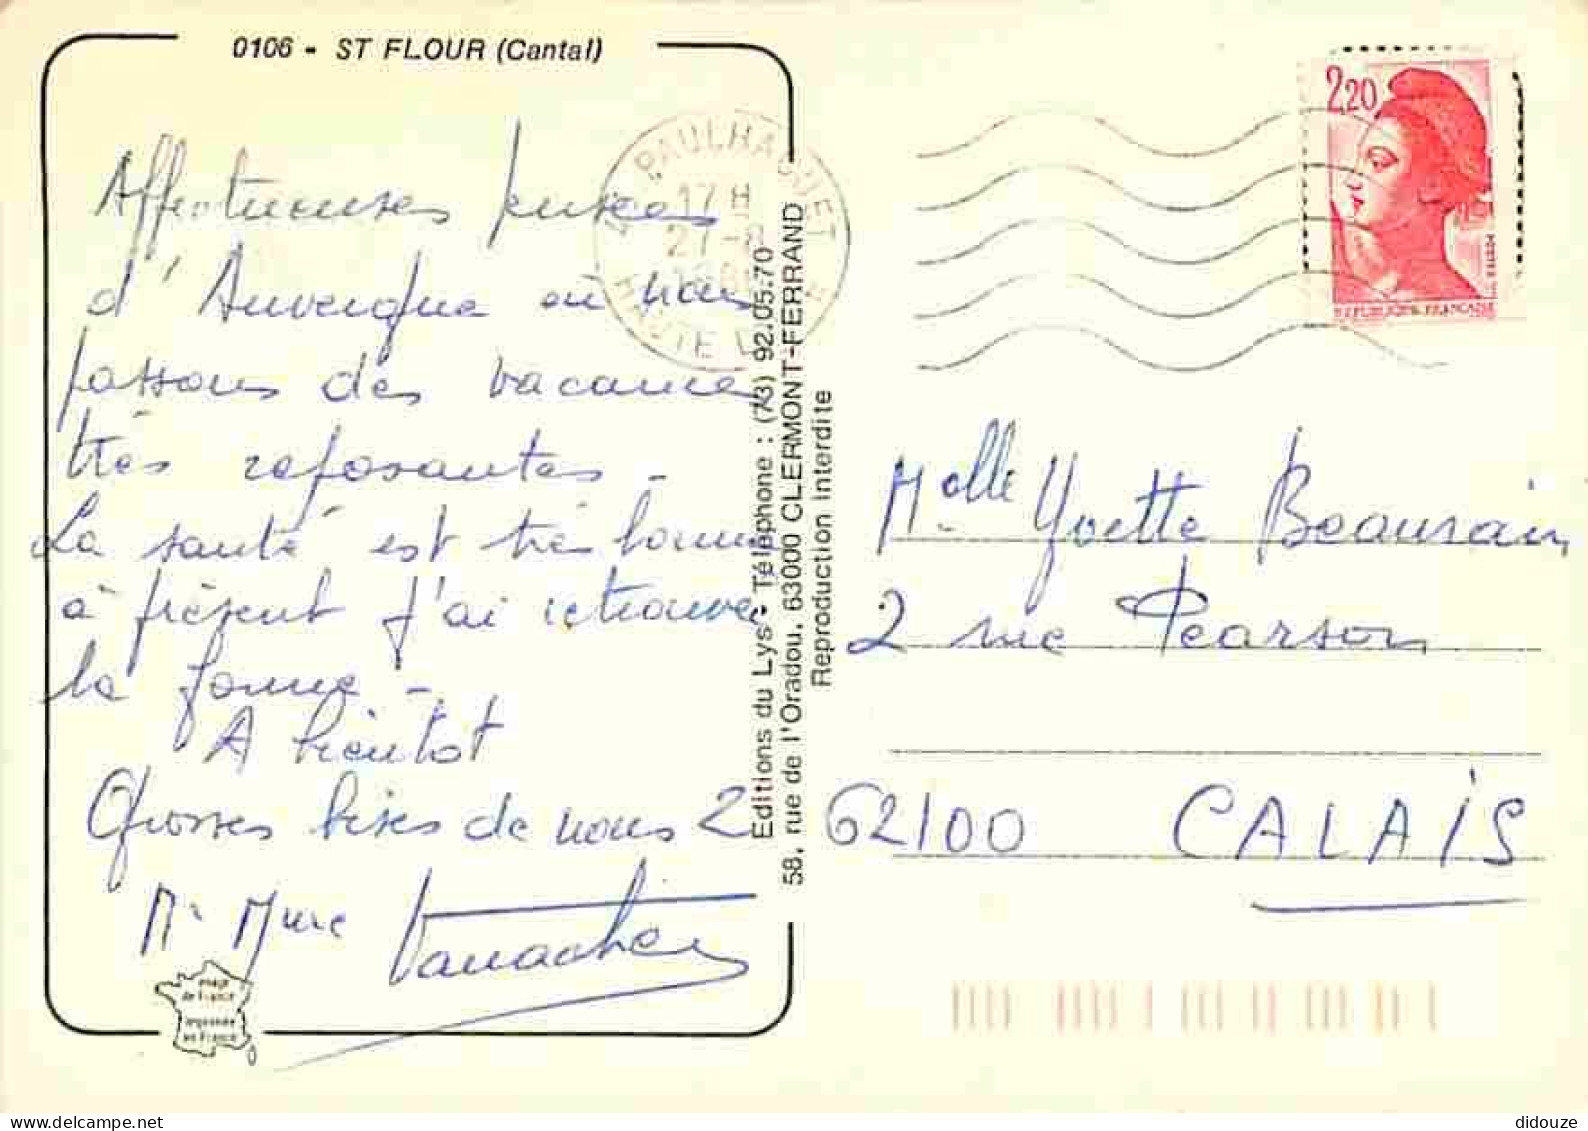 0106 - ST FLOUR (Cantal)
Affectueuses pensées
d'Auvergne où nous
passons des vacances
très reposantes -
La santé est très bonne
à présent j'ai retrouvé
la forme -
A bientôt
Grosses bises de nous 2
Mr Mme
image
de France
imprimée
en France
Editions du Lys - Téléphone : (73) 92.05.70
58, rue de l'Oradou, 63000 CLERMONT-FERRAND
Reproduction Interdite
PAULHAGUET
17 H
27 -8
HAUTE L
2,20
REPUBLIQUE FRANÇAISE
Melle Yvette Beaurain
2 rue Pearson
62100 CALAIS
didouze